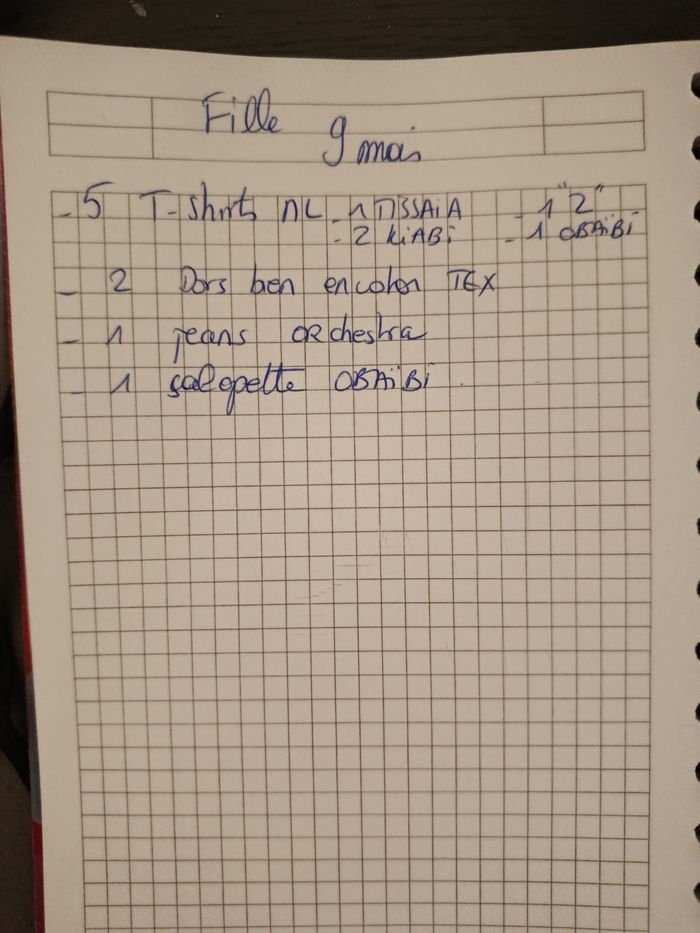 Fille
9 mois
- 5 T-shirts ML - 1 TISSAIA - 1 "2"
- 2 KiABi - 1 OBAÏBI
- 2 Dors bien en coton TEX
- 1 jeans ORchestra
- 1 salopette OBAÏBi